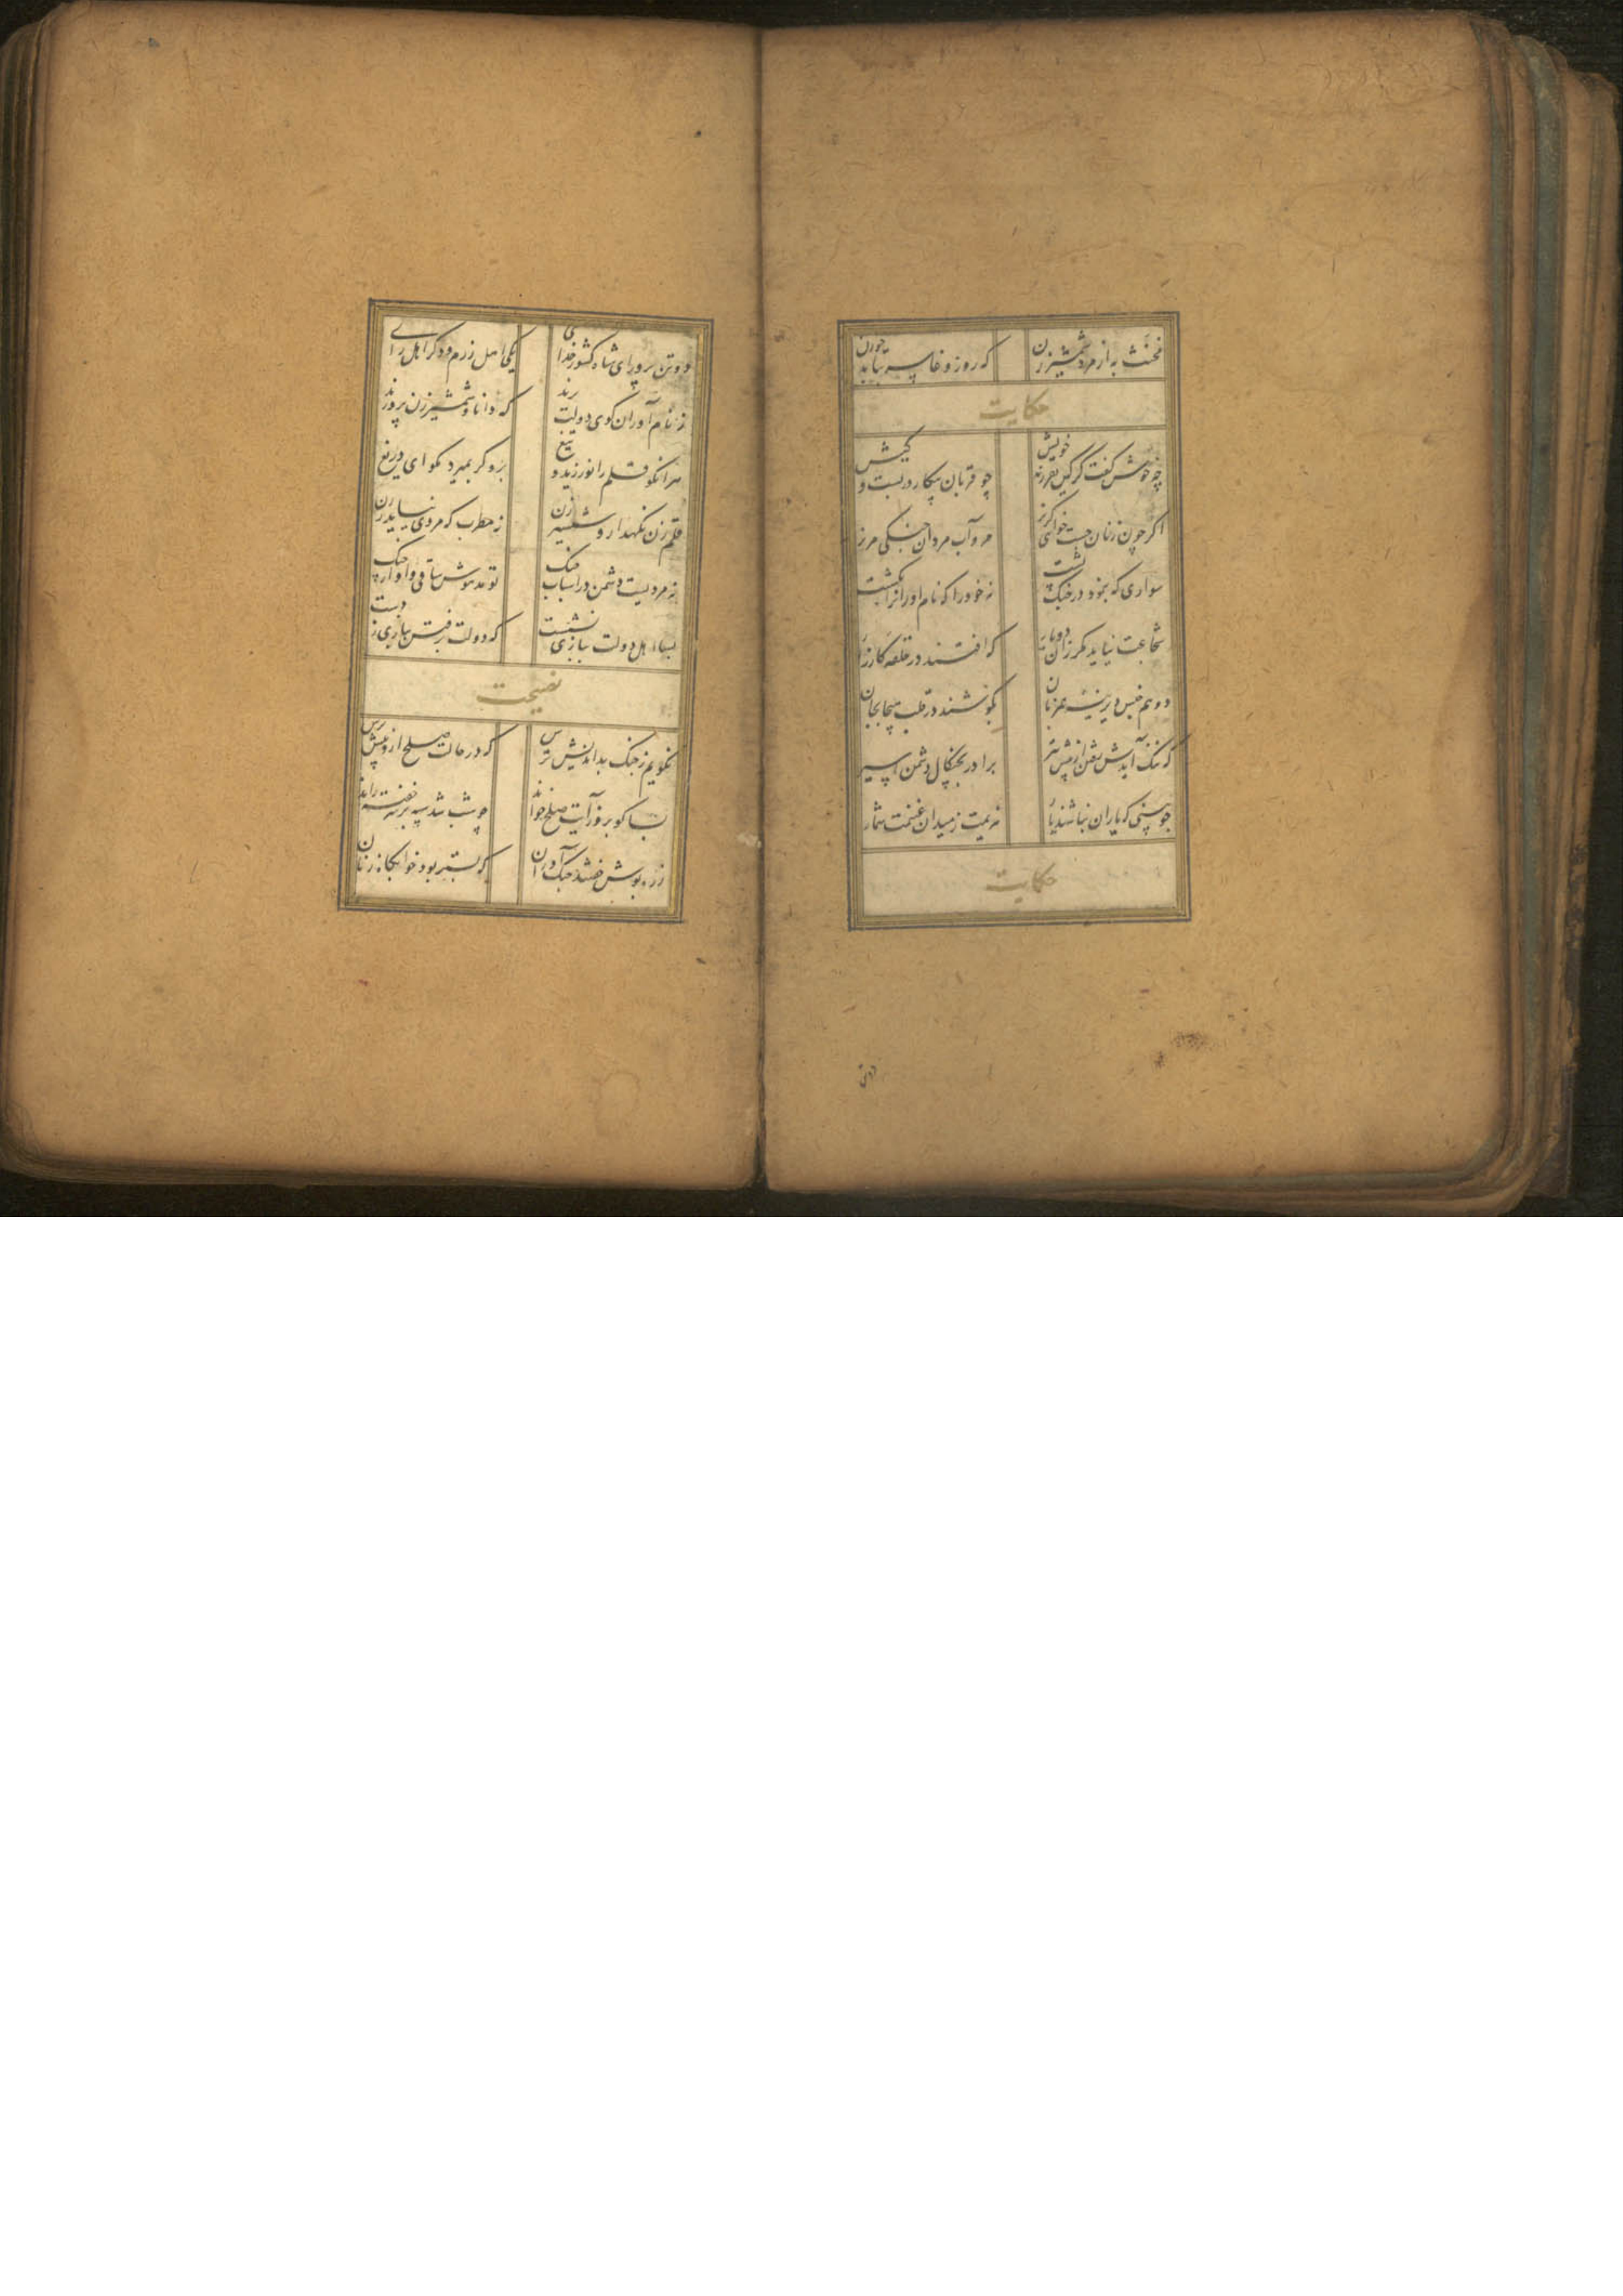 مخنث به از مرد شمشیر زن
که روز وغا سر بتابد چو زن
حکایت
چه خوش گفت گرگین بفرزند خویش
چو قربان پیکار بربست و کیش
اگر چون زنان جست خواهی گریز
مرو آب مردان جنگی مریز
سواری که بنمود در جنگ پشت
نه خود را که نام اوران را بکشت
شجاعت نیاید مگر زان دو یار
که افتند در حلقه کارزار
دو هم جنس دیرینه هم زبان
بکوشند در قلب هیجا بجان
که ننگ آیدش رفتن از پیش تیر
برادر بچنگال دشمن اسیر
چو بینی که یاران نباشند یار
هزیمت ز میدان غنیمت شمار
حکایت
دو تن
دو تن پرور ای شاه کشور خدای
یکی اهل رزم و دگر اهل رای
ز نام آوران گوی دولت برند
که دانا و شمشیر زن پرورند
هر انکو قلم را نورزید و تیغ
برو گر بمیرد مگو ای دریغ
قلم زن نگهدار و شمشیر زن
نه مطرب که مردی نیاید ز زن
نه مردیست دشمن در اسباب جنگ
تو مدهوش ساقی و اواز چنگ
بسا اهل دولت ببازی نشست
که دولت برفتش ببازی ز دست
نصیحت
نگویم ز جنگ بد اندیش ترس
که در حالت صلح ازو بیش ترس
بسا کو بروز آیت صلح خواند
چو شب شد سپه بر سر خفته راند
زره پوش خسبند جنگ آوران
که بستر بود خوابگاه زنان